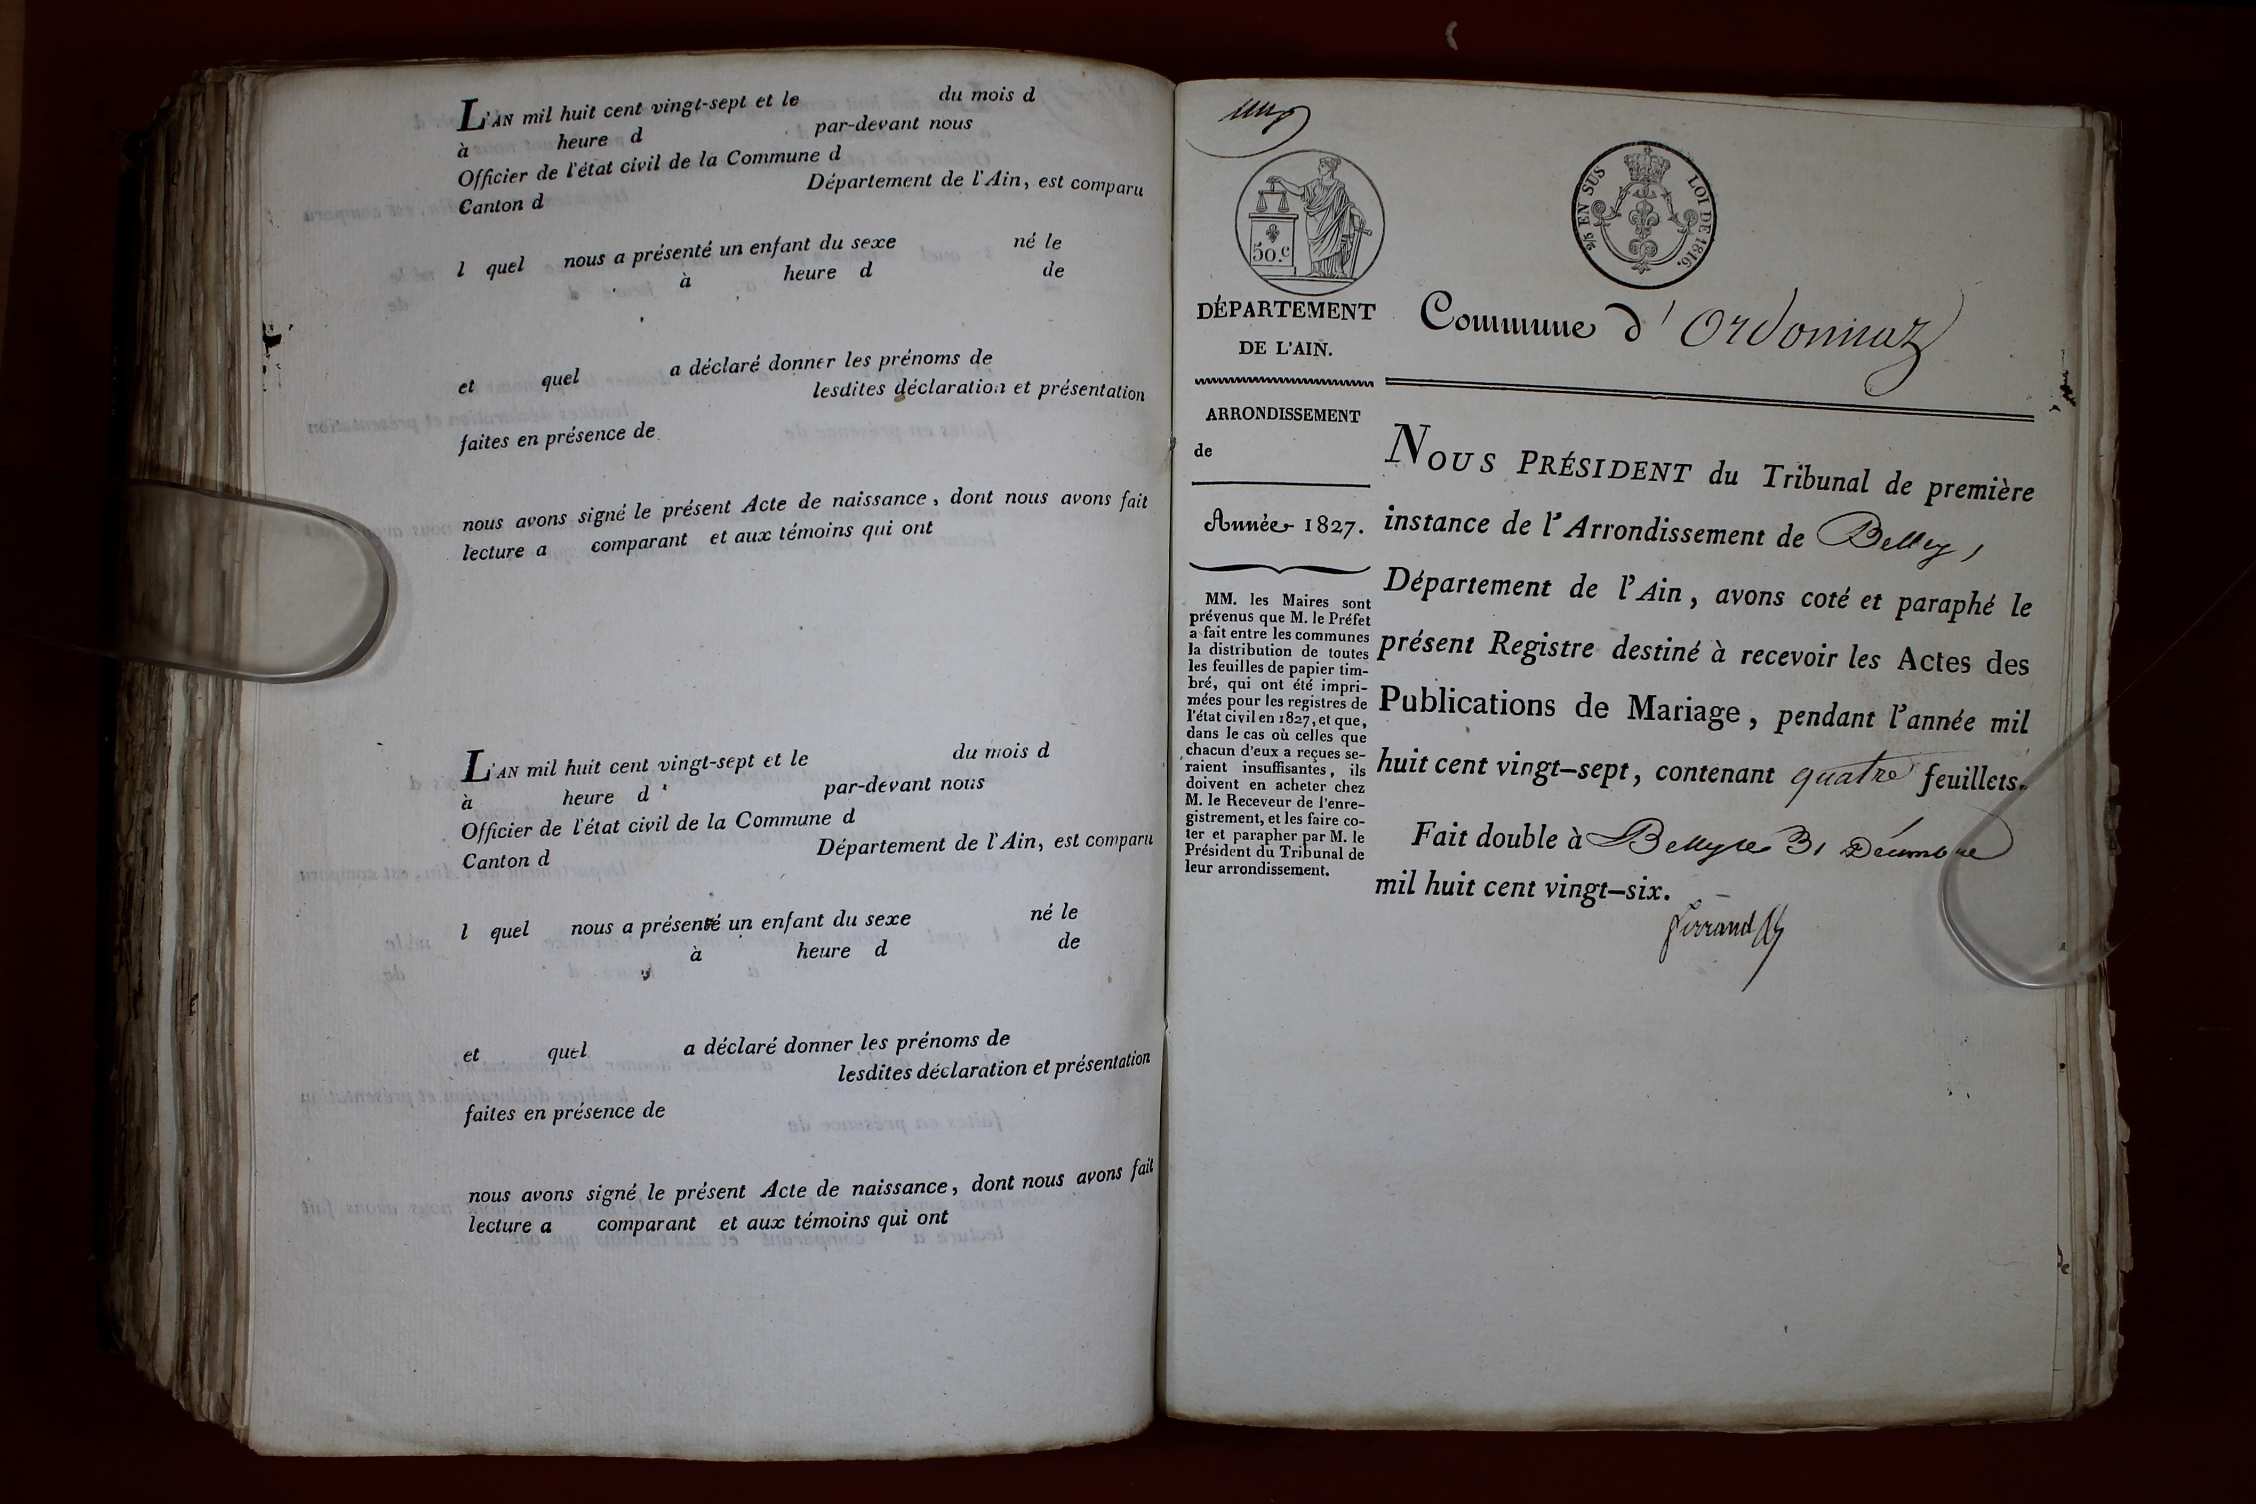 L'AN mil huit cent vingt-sept et le du mois d
à heure d par-devant nous
Officier de l'état civil de la Commune d
Canton d Département de l'Ain, est comparu
l quel nous a présenté un enfant du sexe né le
à heure d de
et quel a déclaré donner les prénoms de
lesdites déclaration et présentation
faites en présence de
nous avons signé le présent Acte de naissance, dont nous avons fait
lecture a comparant et aux témoins qui ont
L'AN mil huit cent vingt-sept et le du mois d
à heure d par-devant nous
Officier de l'état civil de la Commune d
Canton d Département de l'Ain, est comparu
l quel nous a présenté un enfant du sexe né le
à heure d de
et quel a déclaré donner les prénoms de
lesdites déclaration et présentation
faites en présence de
nous avons signé le présent Acte de naissance, dont nous avons fait
lecture a comparant et aux témoins qui ont
50.c
EN SUS LOI DE 1816.
DÉPARTEMENT
DE L'AIN.
ARRONDISSEMENT
de
Année 1827.
MM. les Maires sont
prévenus que M. le Préfet
a fait entre les communes
la distribution de toutes
les feuilles de papier tim-
bré, qui ont été impri-
mées pour les registres de
l'état civil en 1827, et que,
dans le cas où celles que
chacun d'eux a reçues se-
raient insuffisantes, ils
doivent en acheter chez
M. le Receveur de l'enre-
gistrement, et les faire co-
ter et parapher par M. le
Président du Tribunal de
leur arrondissement.
Commune d'Ordonnaz
NOUS PRÉSIDENT du Tribunal de première
instance de l'Arrondissement de Belley,
Département de l'Ain, avons coté et paraphé le
présent Registre destiné à recevoir les Actes des
Publications de Mariage, pendant l'année mil
huit cent vingt-sept, contenant quatre feuillets.
Fait double à Belley le 31 Décembre
mil huit cent vingt-six.